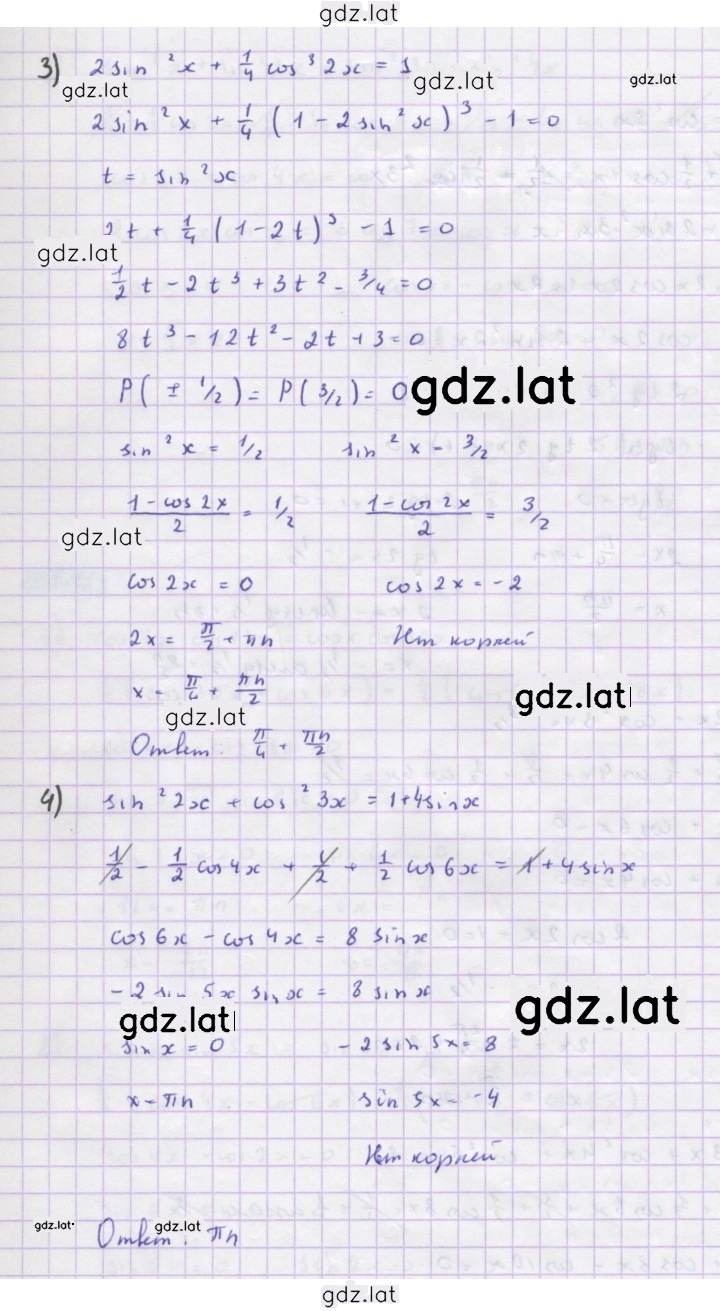 gdz.lat
3) 2 sin ² x + 1/4 cos ³ 2x = 1
gdz.lat gdz.lat gdz.lat
2 sin ² x + 1/4 (1 - 2 sin² x) ³ - 1 = 0
t = sin ² x
2t + 1/4 (1 - 2t)³ - 1 = 0
gdz.lat
1/2 t - 2t³ + 3t² - 3/4 = 0
8t³ - 12t² - 2t + 3 = 0
P( ± 1/2 ) = P( 3/2 ) = 0 gdz.lat
sin ² x = 1/2 sin ² x - 3/2
(1 - cos 2x)/2 = 1/2 (1 - cos 2x)/2 = 3/2
gdz.lat
cos 2x = 0 cos 2x = -2
2x = π/2 + πn Нет корней
x - π/4 + πn/2 gdz.lat
gdz.lat
Ответ: π/4 + πn/2
4) sin ² 2x + cos ² 3x = 1 + 4 sin x
1/2 - 1/2 cos 4x + 1/2 + 1/2 cos 6x = 1 + 4 sin x
cos 6x - cos 4x = 8 sin x
- 2 sin 5x sin x = 8 sin x
gdz.lat gdz.lat
sin x = 0 - 2 sin 5x = 8
x - πn sin 5x = -4
Нет корней
gdz.lat gdz.lat
Ответ: πn
gdz.lat